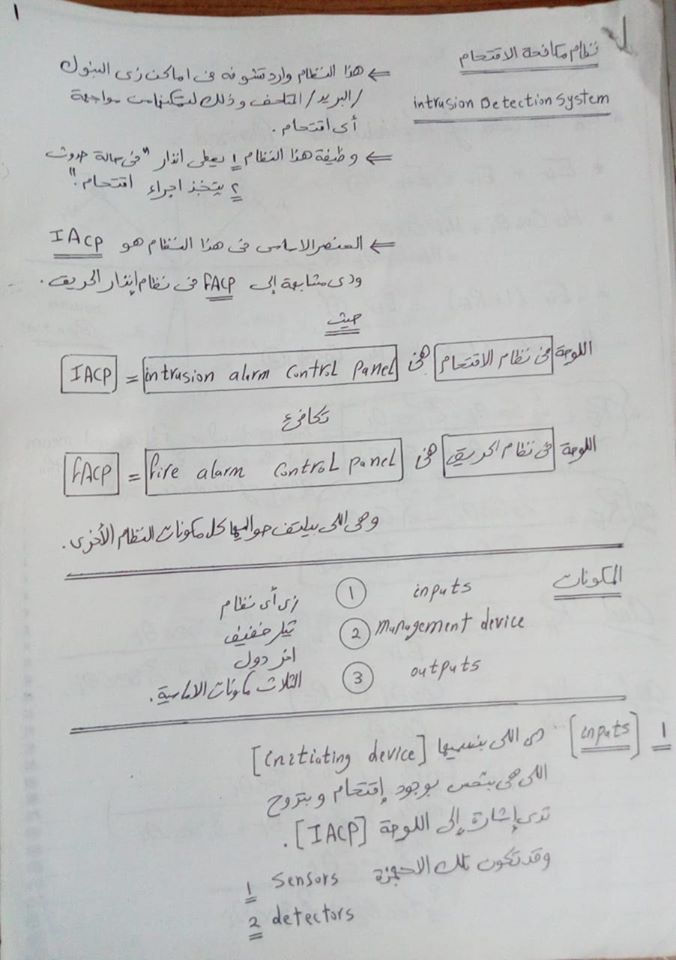 1
نظام مكافحة الاقتحام
intrusion Detection System
⇐ هذا النظام وارد تشوفه فى اماكن زى البنوك
/البريد/ المتاحف وذلك لتمكينهم من مواجهة
أى اقتحام .
⇐ وظيفة هذا النظام 1 يعطى انذار "فى حالة حدوث
2 يتخذ اجراء اقتحام ."
⇐ العنصر الاساسى فى هذا النظام هو IACP
ودى مشابهة إلى FACP فى نظام إنذار الحريق .
حيث
اللوحة فى نظام الاقتحام هى intrusion alarm control panel = IACP
تكافئ
اللوحة فى نظام الحريق هى fire alarm control panel = FACP
وهى اللى بيلتف حواليها كل مكونات النظام الأخرى .
المكونات
inputs 1 زى أى نظام
management device 2 تيار خفيف
outputs 3 الثلاث مكونات الاساسية .
1 [inputs] هى اللى بنسميها [initiating device]
اللى هى بتحس بوجود إقتحام وبتروح
تدى إشارة إلى اللوحة [IACP] .
وقد تكون تلك الاجهزة 1 sensors
2 detectors